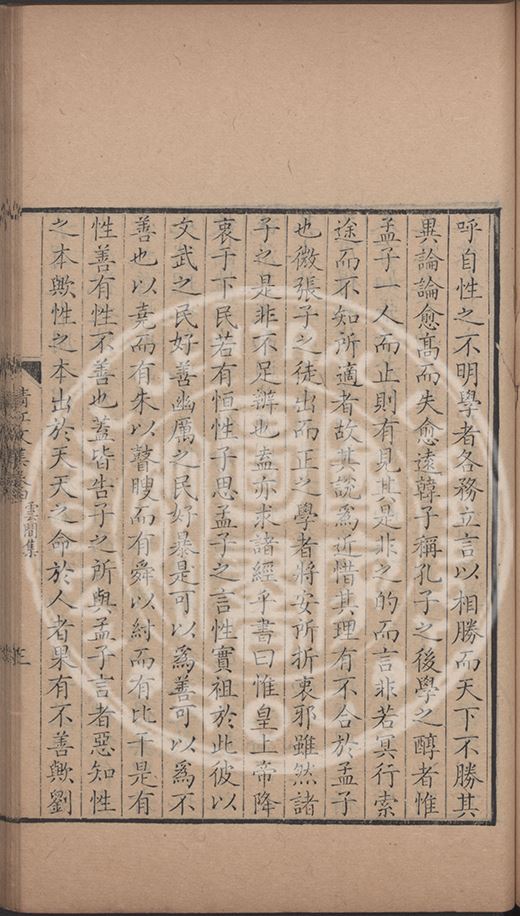 呼自性之不明學者各務立言以相勝而天下不勝其
異論論愈髙而失愈遠韓子稱孔子之後學之醇者惟
孟子一人而止則有見其是非之的而言非若冥行索
途而不知所適者故其說爲近惜其理有不合於孟子
也微張子之徒出而正之學者將安所折衷邪雖然諸
子之是非不足辨也盍亦求諸經乎書曰惟皇上帝降
衷于下民若有恒性子思孟子之言性實祖於此彼以
文武之民好善幽厲之民好暴是可以爲善可以爲不
善也以堯而有朱以瞽瞍而有舜以紂而有比干是有
性善有性不善也蓋皆告子之所與孟子言者惡知性
之本歟性之本出於天天之命於人者果有不善歟劉
清江文集
雲間集